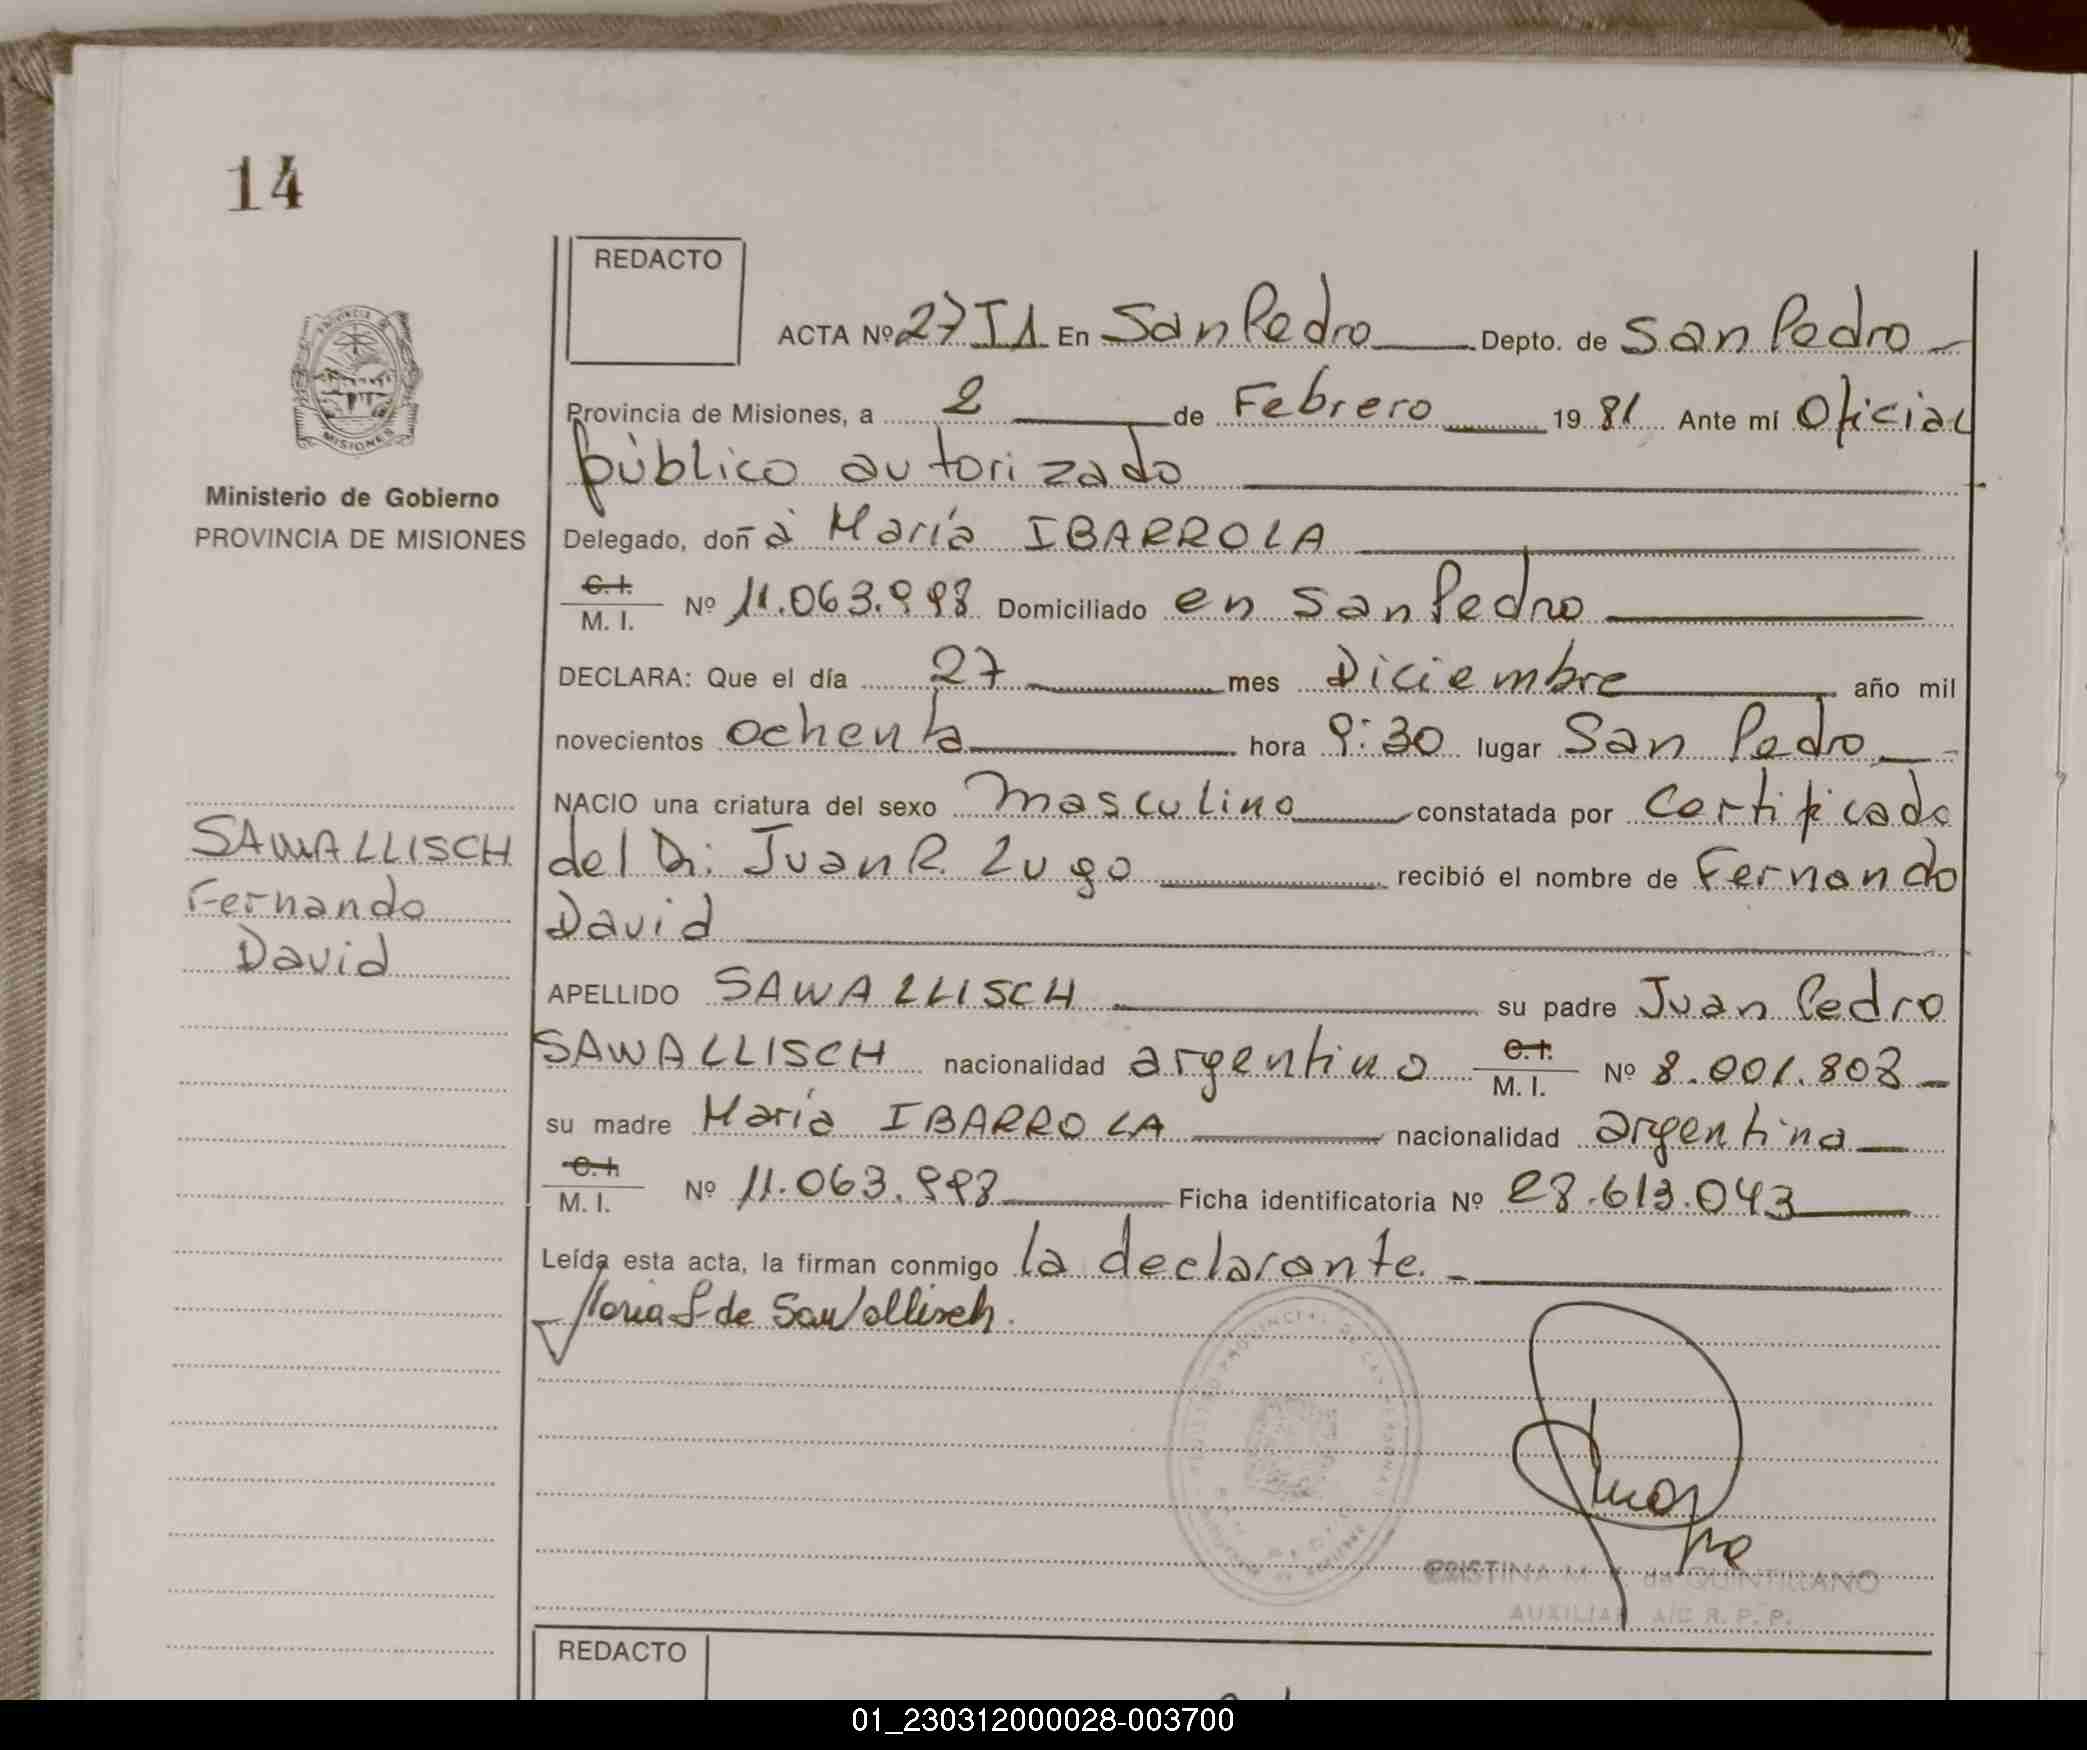 14
REDACTO
ACTA Nº 27 T1 En San Pedro Depto. de San Pedro
Provincia de Misiones, a 2 de Febrero 1981 Ante mí Oficial
público autorizado
Delegado, doña María IBARROLA
C. I.
M. I. Nº 11.063.998 Domiciliado en San Pedro
DECLARA: Que el día 27 mes Diciembre año mil
novecientos ochenta hora 9:30 lugar San Pedro
NACIO una criatura del sexo masculino constatada por Certificado
del Dr. Juan R. Lugo recibió el nombre de Fernando
David
APELLIDO SAWALLISCH su padre Juan Pedro
SAWALLISCH nacionalidad argentino C. I. M. I. Nº 8.001.808
su madre María IBARROLA nacionalidad argentina
C. I.
M. I. Nº 11.063.998 Ficha identificatoria Nº 28.613.043
Leída esta acta, la firman conmigo la declarante.
de Sawallisch
PROVINCIA DE
MISIONES
Ministerio de Gobierno
PROVINCIA DE MISIONES
SAWALLISCH
Fernando
David
CRISTINA M de QUINTILLANO
AUXILIAR A/C R. P. P.
REDACTO
01_230312000028-003700